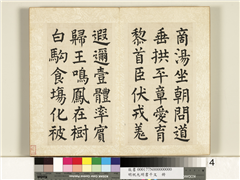 商湯坐朝問道
垂拱平章愛育
黎首臣伏戎羌
遐邇壹體率賓
歸王鳴鳳在樹
白駒食塲化被
4